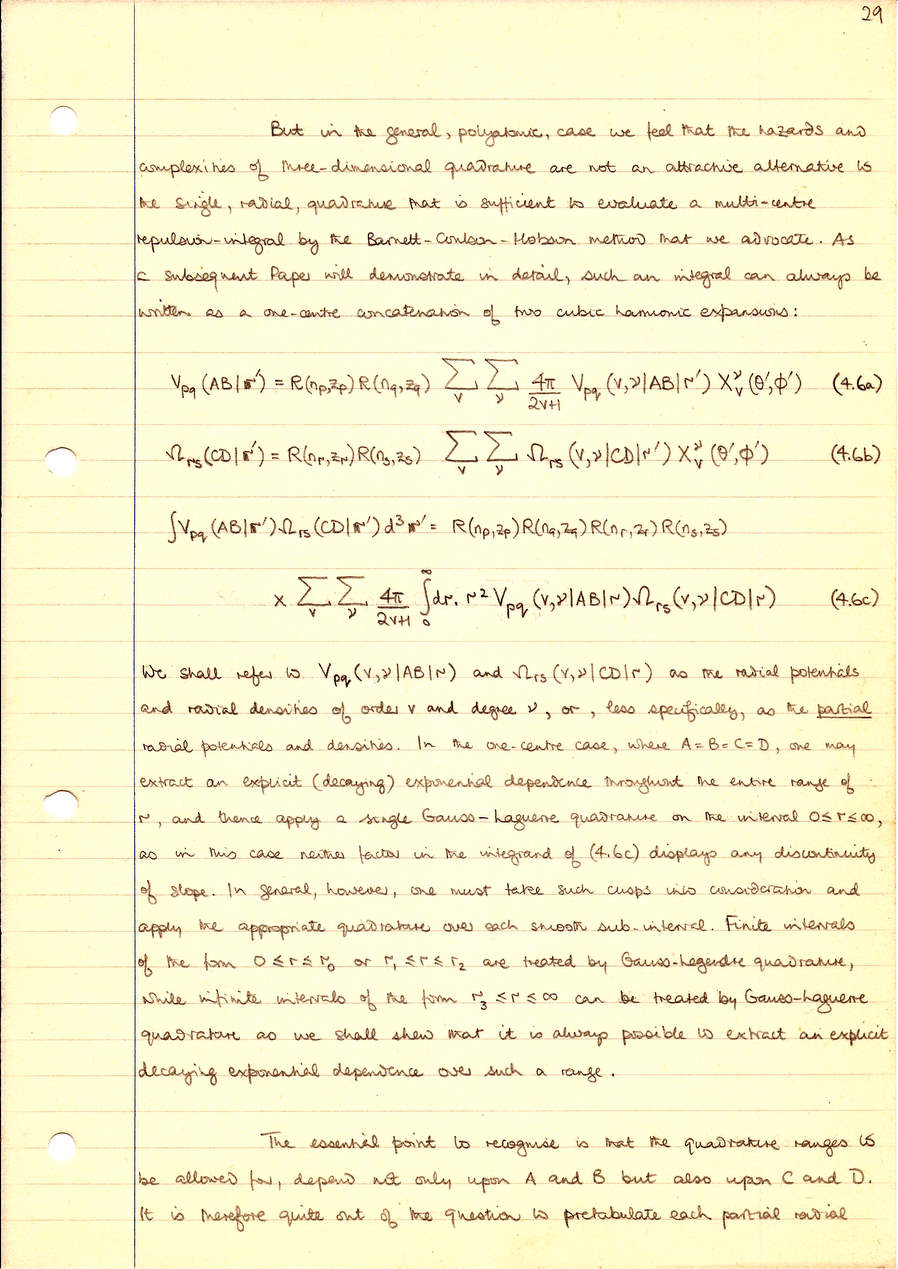 29
But in the general, polyatomic, case we feel that the hazards and
complexities of three-dimensional quadrature are not an attractive alternative to
the single, radial, quadrature that is sufficient to evaluate a multi-centre
repulsion-integral by the Barnett-Coulson-Hobson method that we advocate. As
a subsequent Paper will demonstrate in detail, such an integral can always be
written as a one-centre concatenation of two cubic harmonic expansions:
V_pq (AB|𝐫′) = R(n_p,z_p) R(n_q,z_q) ∑_v ∑_ν 4π/(2v+1) V_pq (v,ν|AB|r′) X_v^ν (θ′,ϕ′) (4.6a)
Ω_rs (CD|𝐫′) = R(n_r,z_r) R(n_s,z_s) ∑_v ∑_ν Ω_rs (v,ν|CD|r′) X_v^ν (θ′,ϕ′) (4.6b)
∫V_pq (AB|𝐫′) Ω_rs (CD|𝐫′) d³𝐫′ = R(n_p,z_p) R(n_q,z_q) R(n_r,z_r) R(n_s,z_s)
× ∑_v ∑_ν 4π/(2v+1) ∫_0^∞ dr. r² V_pq (v,ν|AB|r) Ω_rs (v,ν|CD|r) (4.6c)
We shall refer to V_pq (v,ν|AB|r) and Ω_rs (v,ν|CD|r) as the radial potentials
and radial densities of order v and degree ν, or, less specifically, as the partial
radial potentials and densities. In the one-centre case, where A=B=C=D, one may
extract an explicit (decaying) exponential dependence throughout the entire range of
r, and thence apply a single Gauss-Laguerre quadrature on the interval 0≤r≤∞,
as in this case neither factor in the integrand of (4.6c) displays any discontinuity
of slope. In general, however, one must take such cusps into consideration and
apply the appropriate quadrature over each smooth sub-interval. Finite intervals
of the form 0≤r≤r₀ or r₁≤r≤r₂ are treated by Gauss-Legendre quadrature,
while infinite intervals of the form r₃≤r≤∞ can be treated by Gauss-Laguerre
quadrature as we shall shew that it is always possible to extract an explicit
decaying exponential dependence over such a range.
The essential point to recognise is that the quadrature ranges to
be allowed for, depend not only upon A and B but also upon C and D.
It is therefore quite out of the question to pretabulate each partial radial